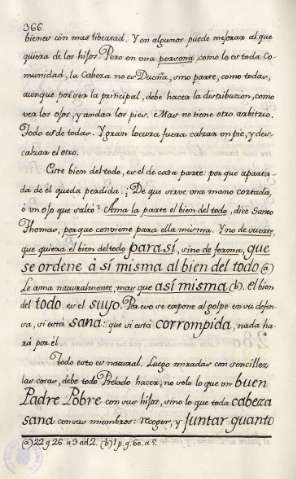 366
bienes con mas libertad. Y en algunos puede mejorar al que
quiera de los hijos. Pero en una persona, como lo es toda Co-
munidad, la Cabeza no es Dueña, sino parte, como todas,
aunque por ser la principal, debe hacer la distribucion, como
ver los ojos, y andar los pies. Mas no tiene otro arbitrio.
Todo es de todas. Y gran locura fuera calzar un pie, y des-
calzar el otro.
Este bien del todo, es el de cada parte: por que aparta-
da de él queda perdida. ¿De que sirve una mano cortada,
ó un ojo que saltó? Ama la parte el bien del todo, dice Santo
Thomas, por que conviene para ella misma. Y no de suerte,
que quiera el bien del todo para sí, sino de forma, que
se ordene à sí misma al bien del todo (a)
Le ama naturalmente, mas que a sí misma (b). el bien
del todo es el suyo. Por eso se expone al golpe en su defen-
sa, si está sana: que si está corrompida, nada ha-
rá por el.
Todo esto es natural. Luego miradas con sencillez
las cosas, debe todo Prelado hacer, no solo lo que un buen
Padre Pobre con sus hijos, sino lo que toda cabeza
sana con sus miembros: Recoger, y juntar quanto
(a) 22 q 26 a 3 ad 2. (b) 1 p. q. 60. a 5.